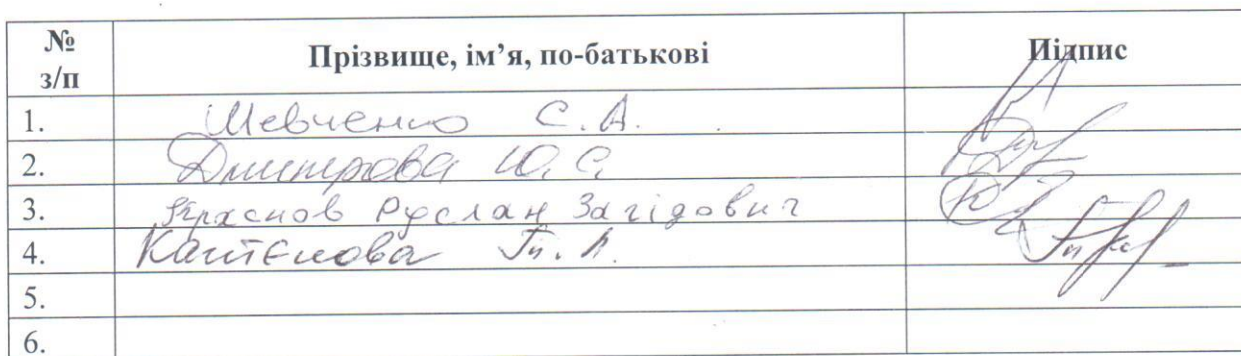 № з/п Прізвище, ім’я, по-батькові Підпис
1. Шевченко С.А.
2. Дмитрова Ю.С.
3. Краснов Руслан Загідович
4.
5.
6.